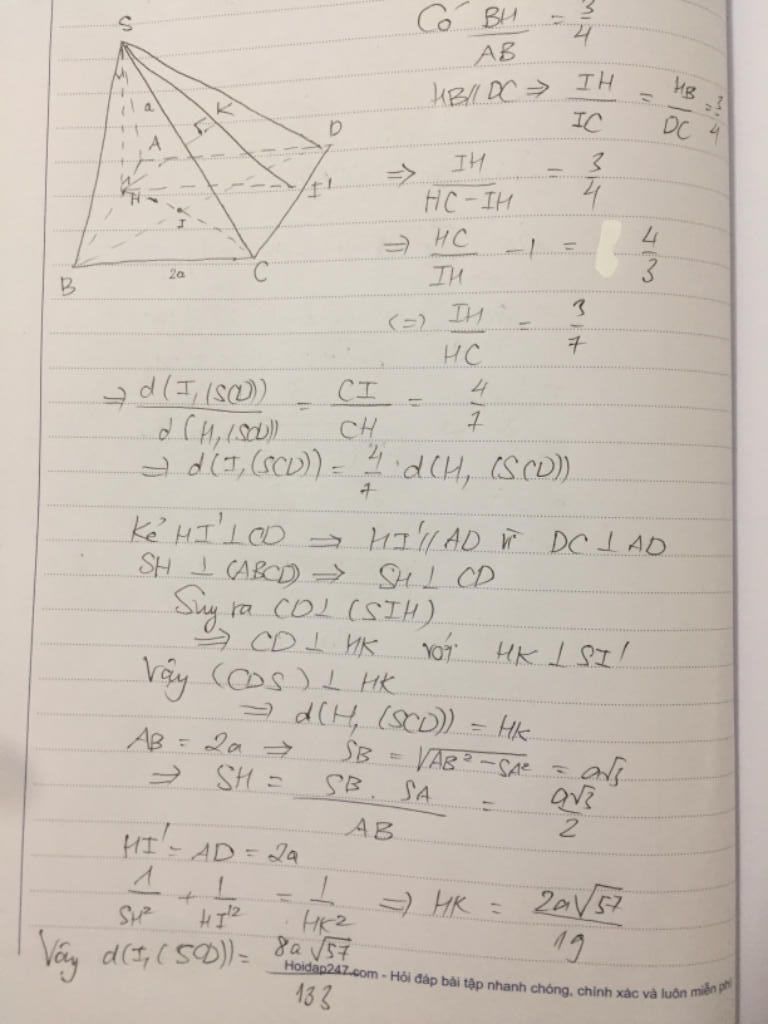 S
a
K
A
D
H
I'
I
B
2a
C
Có BH/AB = 3/4
HB // DC ⇒ IH/IC = HB/DC = 3/4
⇒ IH/(HC - IH) = 3/4
⇒ HC/IH - 1 = 4/3
(=) IH/HC = 3/7
⇒ d(I,(SCD))/d(H,(SCD)) = CI/CH = 4/7
⇒ d(I,(SCD)) = 4/7 . d(H, (SCD))
Kẻ HI' ⊥ CD ⇒ HI' // AD vì DC ⊥ AD
SH ⊥ (ABCD) ⇒ SH ⊥ CD
Suy ra CD ⊥ (SIH)
⇒ CD ⊥ HK với HK ⊥ SI'
Vậy (CDS) ⊥ HK
⇒ d(H, (SCD)) = HK
AB = 2a ⇒ SB = √(AB² - SA²) = a√3
⇒ SH = SB . SA/AB = a√3/2
HI' = AD = 2a
1/SH² + 1/HI'² = 1/HK² ⇒ HK = 2a√57/19
Vậy d(I,(SCD)) = 8a√57/133
Hoidap247.com - Hỏi đáp bài tập nhanh chóng, chính xác và luôn miễn phí